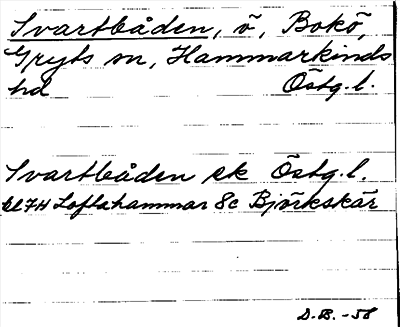 Svartbåden, ö, Bokö,
Gryts sn, Hammarkinds
hd Östg.l.
Svartbåden ek Östg.l.
bl 7H Loftahammar 8c Björkskär
D.B. -58